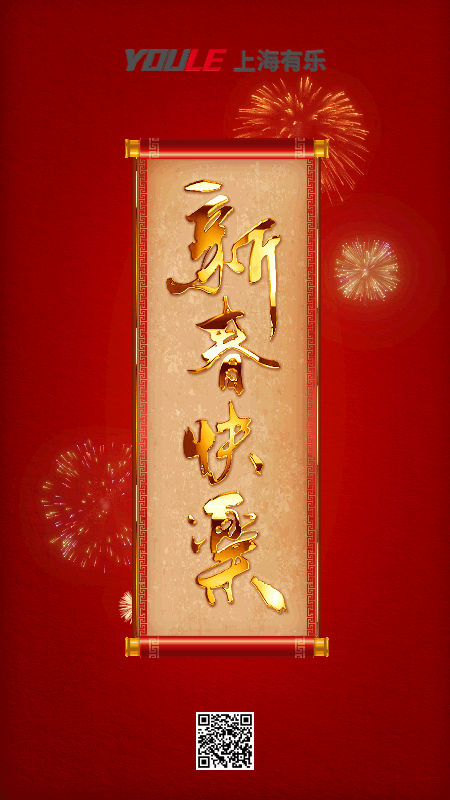 YOULE 上海有乐
新春快樂